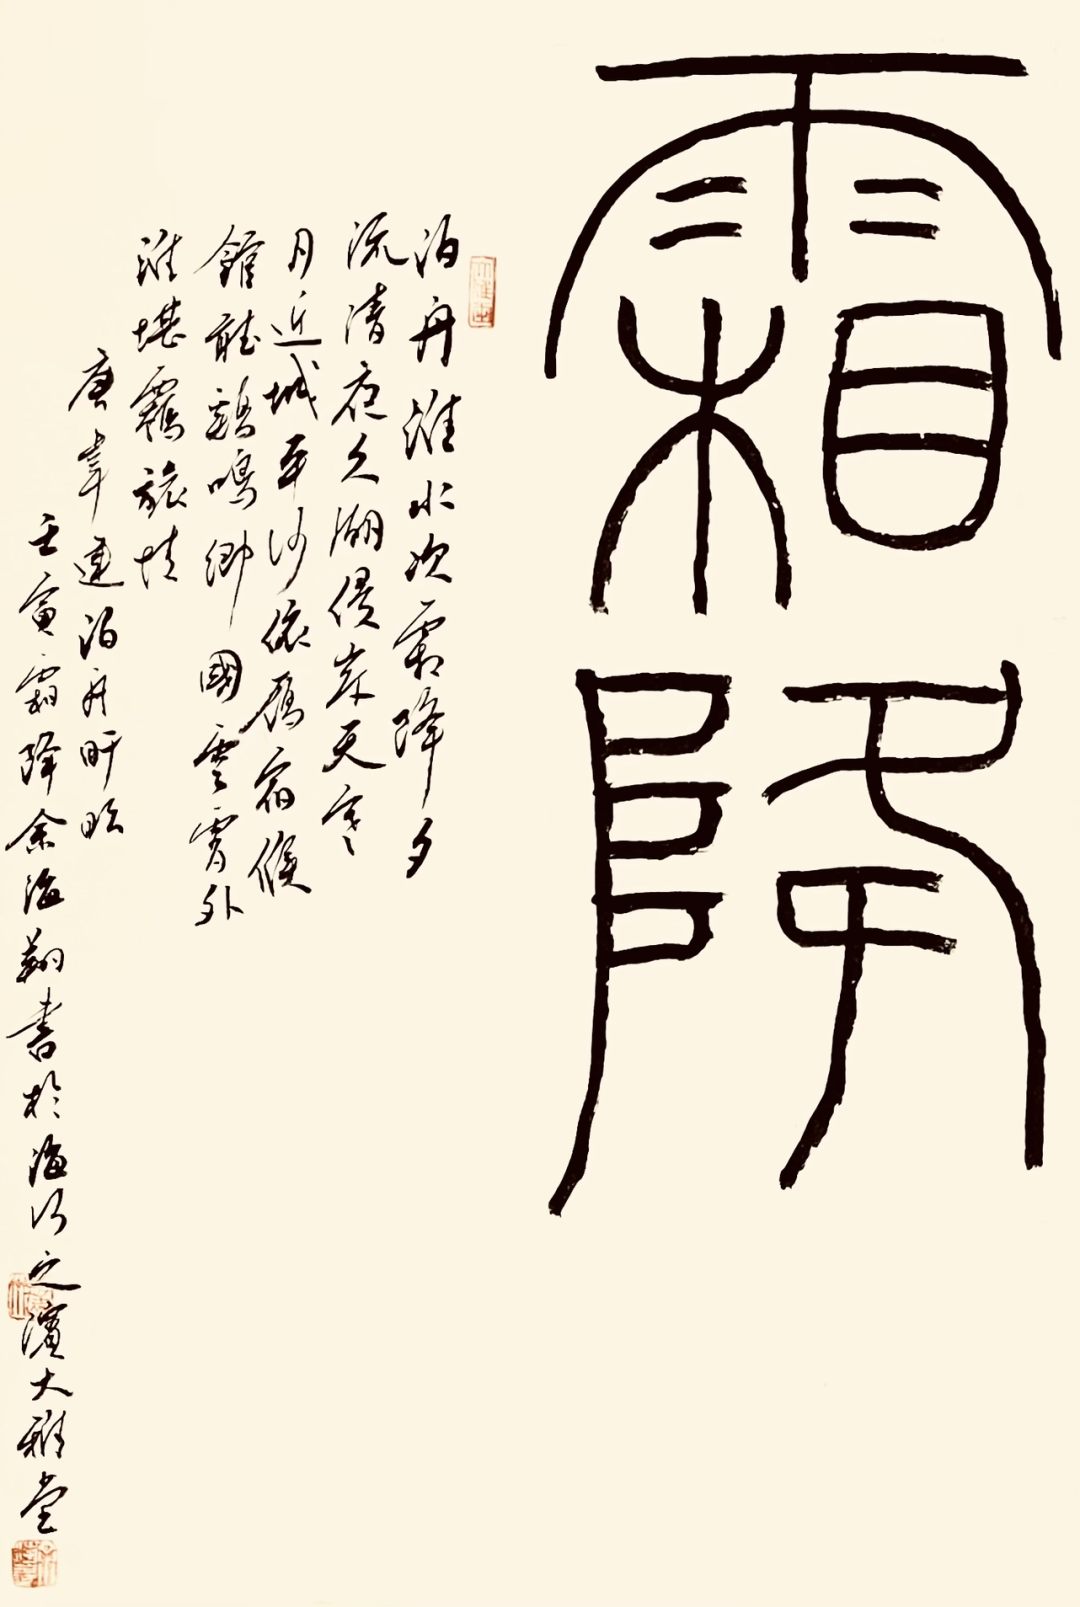 霜降
泊舟淮水次霜降夕
流清夜久潮侵岸天寒
月近城平沙依雁宿候
館聽鷄鳴鄉國雲霄外
誰堪羈旅情
唐韋建泊舟盱眙
壬寅霜降余海翔書於海河之濱大雅堂